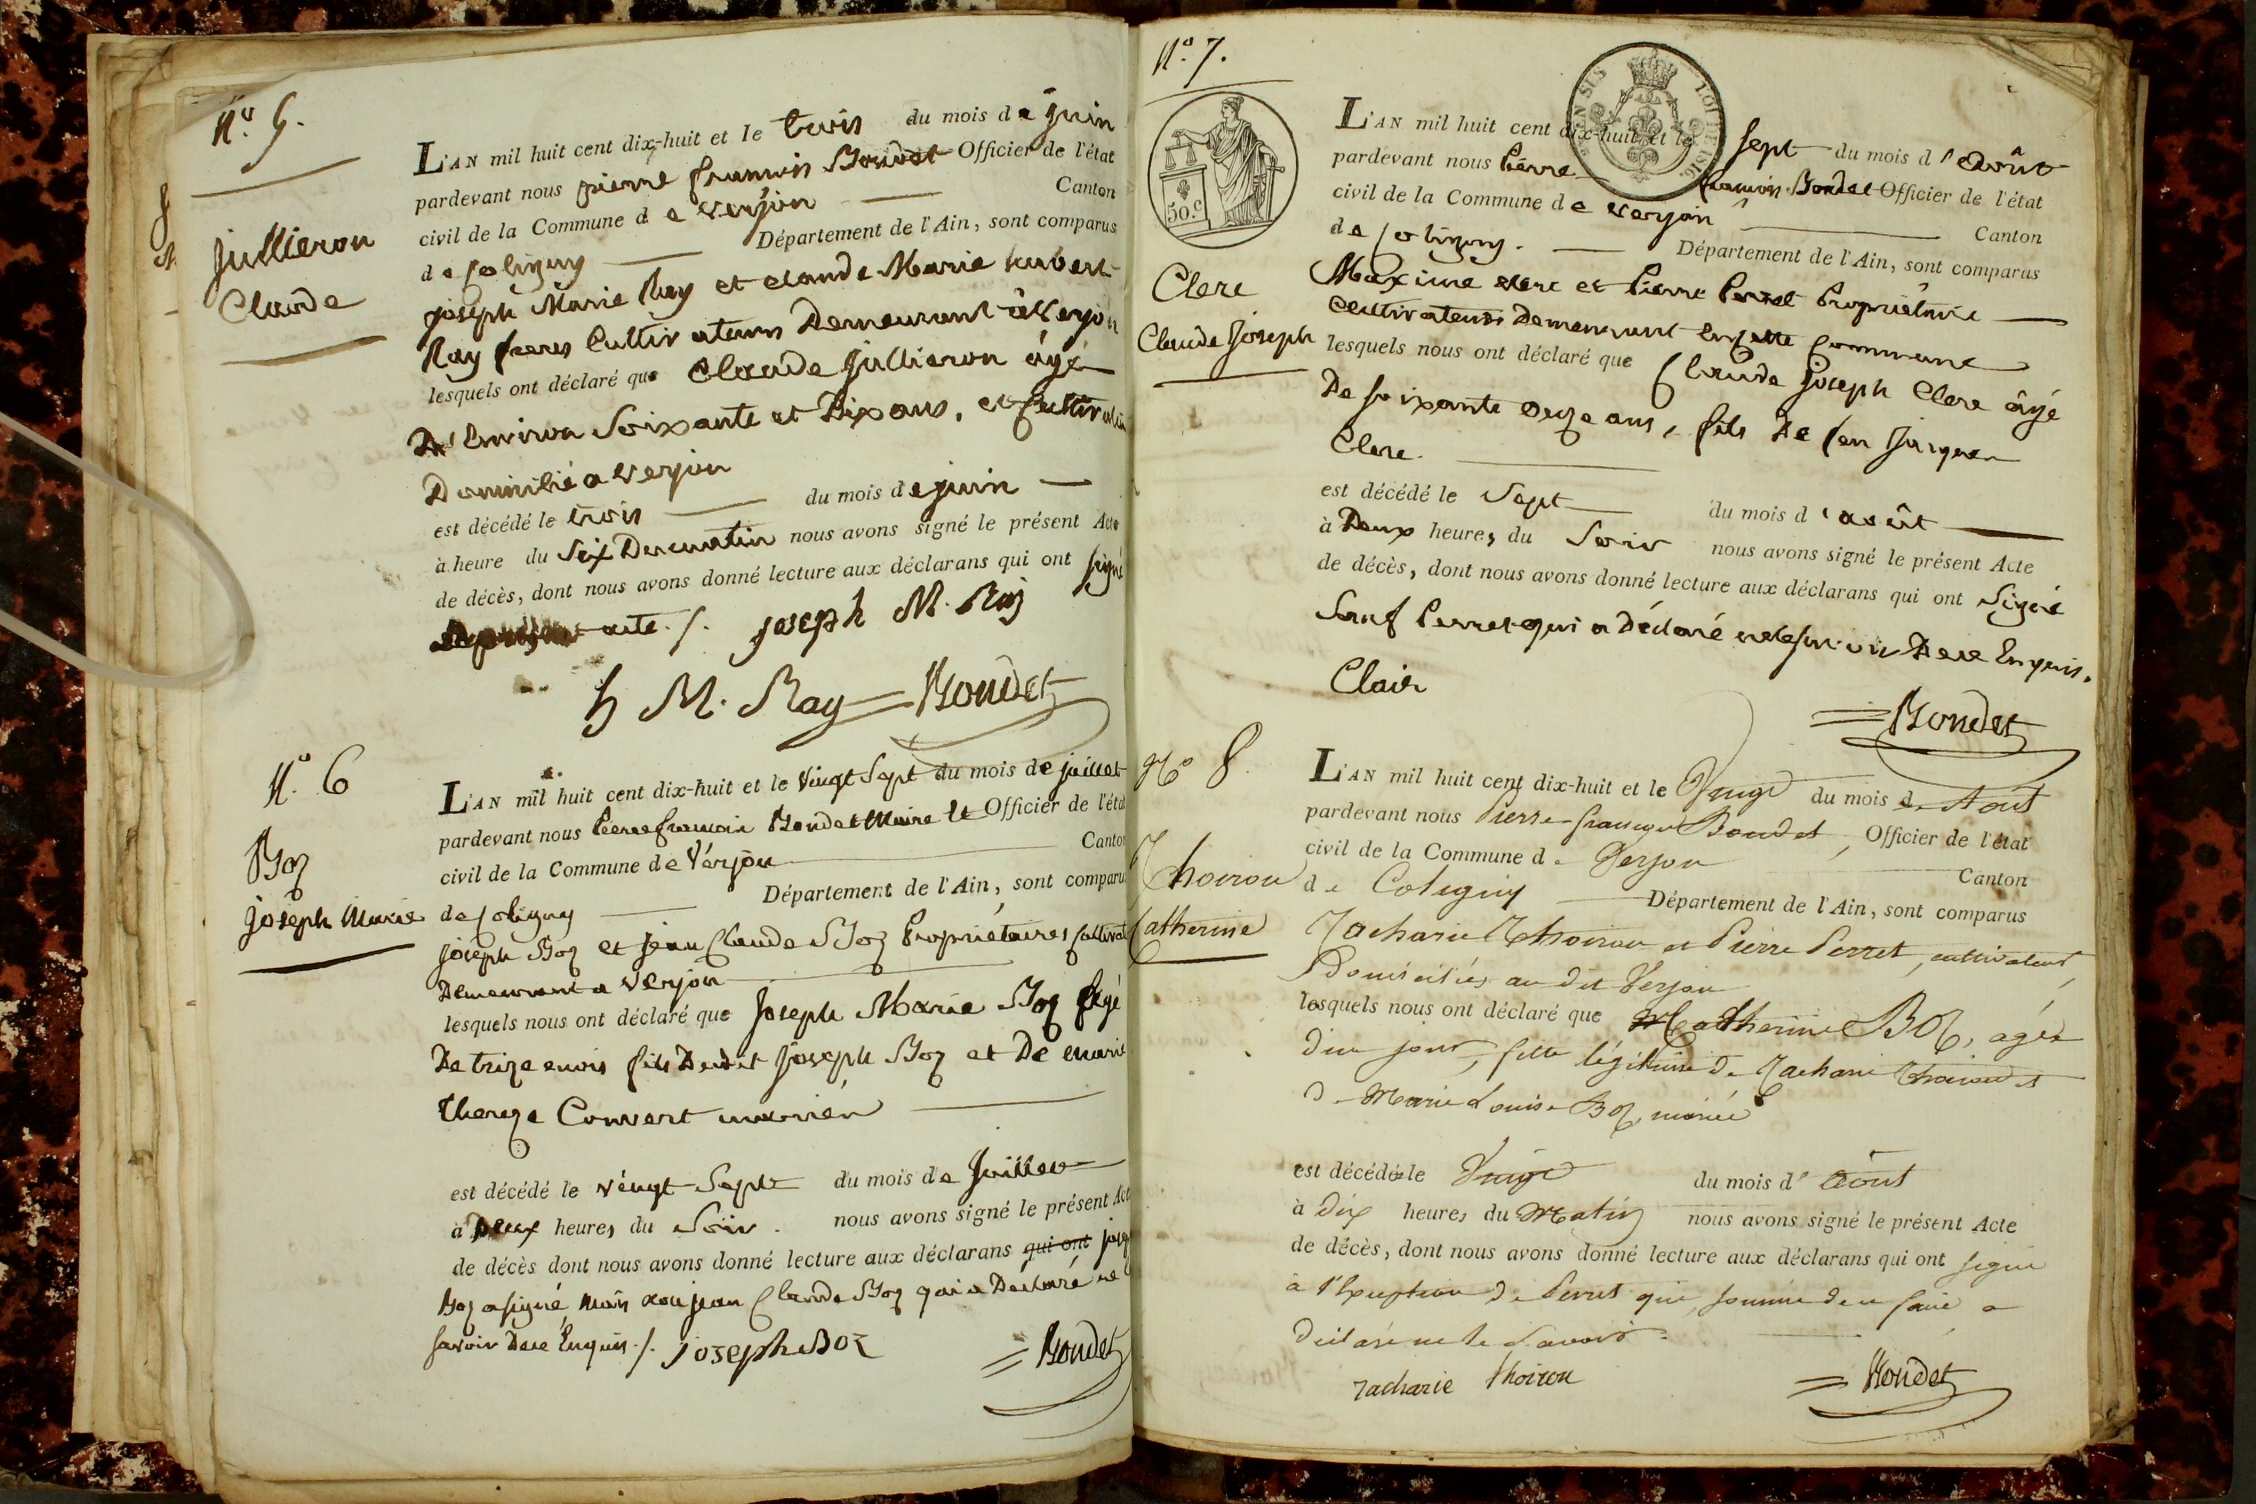 N.o 5.
Jullieron
Claude
L'AN mil huit cent dix-huit et le trois du mois de juin
pardevant nous pierre françois Bondet Officier de l'état
civil de la Commune de verjon Canton
de Coligny Département de l'Ain, sont comparus
joseph Marie Ray et claude Marie hubert
Ray freres Cultivateurs Demeurant à Verjon
lesquels ont déclaré que Claude Jullieron âgé
D'Environ Soixante et Dix ans, et Cultivateur
Domicilié a verjon
est décédé le trois du mois de juin
à heure du Six Du matin nous avons signé le présent Acte
de décès, dont nous avons donné lecture aux déclarans qui ont signé
acte ./. joseph M. Ray
h M. Ray Bondet
N.o 6
Boz
joseph Marie
L'AN mil huit cent dix-huit et le vingt Sept du mois de juillet
pardevant nous Pierre francois Bondet Maire et Officier de l'état
civil de la Commune de Verjon Canton
de Coligny Département de l'Ain, sont comparu
joseph Boz et jean Claude Boz Propriétaires Cultivat
Demeurant a verjon
lesquels nous ont déclaré que Joseph Marie Boz âgé
De treize mois fils Dudit Joseph Boz et De marie
thereze Convert mariés
est décédé le vingt-Sept du mois de Juillet
à Deux heures du Soir. nous avons signé le présent Act
de décès dont nous avons donné lecture aux déclarans qui ont jose
Boz a signé, mais non jean Claude Boz qui a Déclaré ne
savoir De ce Enquis ./. joseph Boz Bondet
N.o 7.
50.c
Clerc
Claude Joseph
L'AN mil huit cent dix-huit et le sept du mois d'Août
pardevant nous Pierre françois Bondet Officier de l'état
civil de la Commune de verjon Canton
de Coligny. Département de l'Ain, sont comparus
Maxime clerc et Pierre Perret Propriétaire
Cultivateurs Demeurant En cette Commune
lesquels nous ont déclaré que Claude Joseph Clerc âgé
De soixante onze ans, fils De feu Jacques
Clerc.
est décédé le Sept du mois d'août
à Deux heures du Soir nous avons signé le présent Acte
de décès, dont nous avons donné lecture aux déclarans qui ont Signé
Sauf Perret qui a Déclaré ne savoir De ce Enquis.
Clair
Bondet
No 8.
Thoiron
Catherine
L'AN mil huit cent dix-huit et le Vingt du mois de Août
pardevant nous Pierre françois Bondet, Officier de l'état
civil de la Commune de Verjon Canton
de Coligny Département de l'Ain, sont comparus
Zacharie Thoiron et Pierre Perret, cultivateurs,
Domiciliés au dit Verjon
lesquels nous ont déclaré que Catherine Boz, agée
d'un jour, fille légitime de Zacharie Thoiron et
de Marie Louise Boz, mariés
est décédée le Vingt du mois d'Août
à Dix heures du Matin nous avons signé le présent Acte
de décès, dont nous avons donné lecture aux déclarans qui ont signé
à l'Exception de Perret qui sommé de ce faire a
Déclaré ne le savoir.
zacharie thoiron Bondet